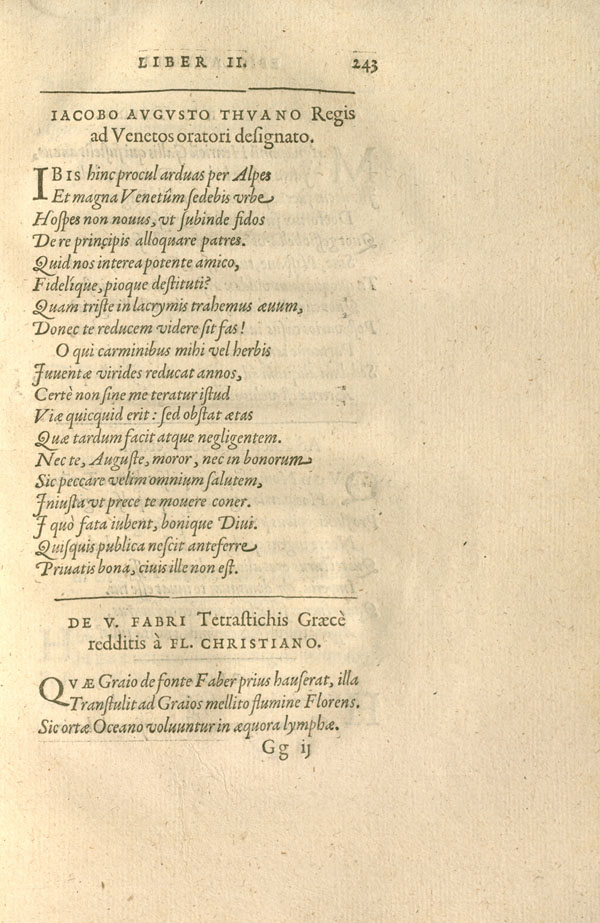 LIBER II. 243
IACOBO AVGVSTO THVANO Regis
ad Venetos oratori deſignato.
IBIS hinc procul arduas per Alpes
Et magna Venetûm ſedebis vrbe
Hoſpes non nouus, vt ſubinde fidos
De re principis alloquare patres.
Quid nos interea potente amico,
Fidelíque, pioque deſtituti?
Quam triſte in lacrymis trahemus æuum,
Donec te reducem videre ſit fas!
O qui carminibus mihi vel herbis
Iuuentæ virides reducat annos,
Certè non ſine me teratur iſtud
Viæ quicquid erit: ſed obſtat ætas
Quæ tardum facit atque negligentem.
Nec te, Auguſte, moror, nec in bonorum
Sic peccare velim omnium ſalutem,
Iniuſta vt prece te mouere coner.
I quò fata iubent, bonique Diui.
Quiſquis publica neſcit anteferre
Priuatis bona, ciuis ille non eſt.
DE V. FABRI Tetraſtichis Græcè
redditis à FL. CHRISTIANO.
QVÆ Graio de fonte Faber prius hauſerat, illa
Tranſtulit ad Graios mellito flumine Florens.
Sic ortæ Oceano voluuntur in æquora lymphæ.
Gg ij